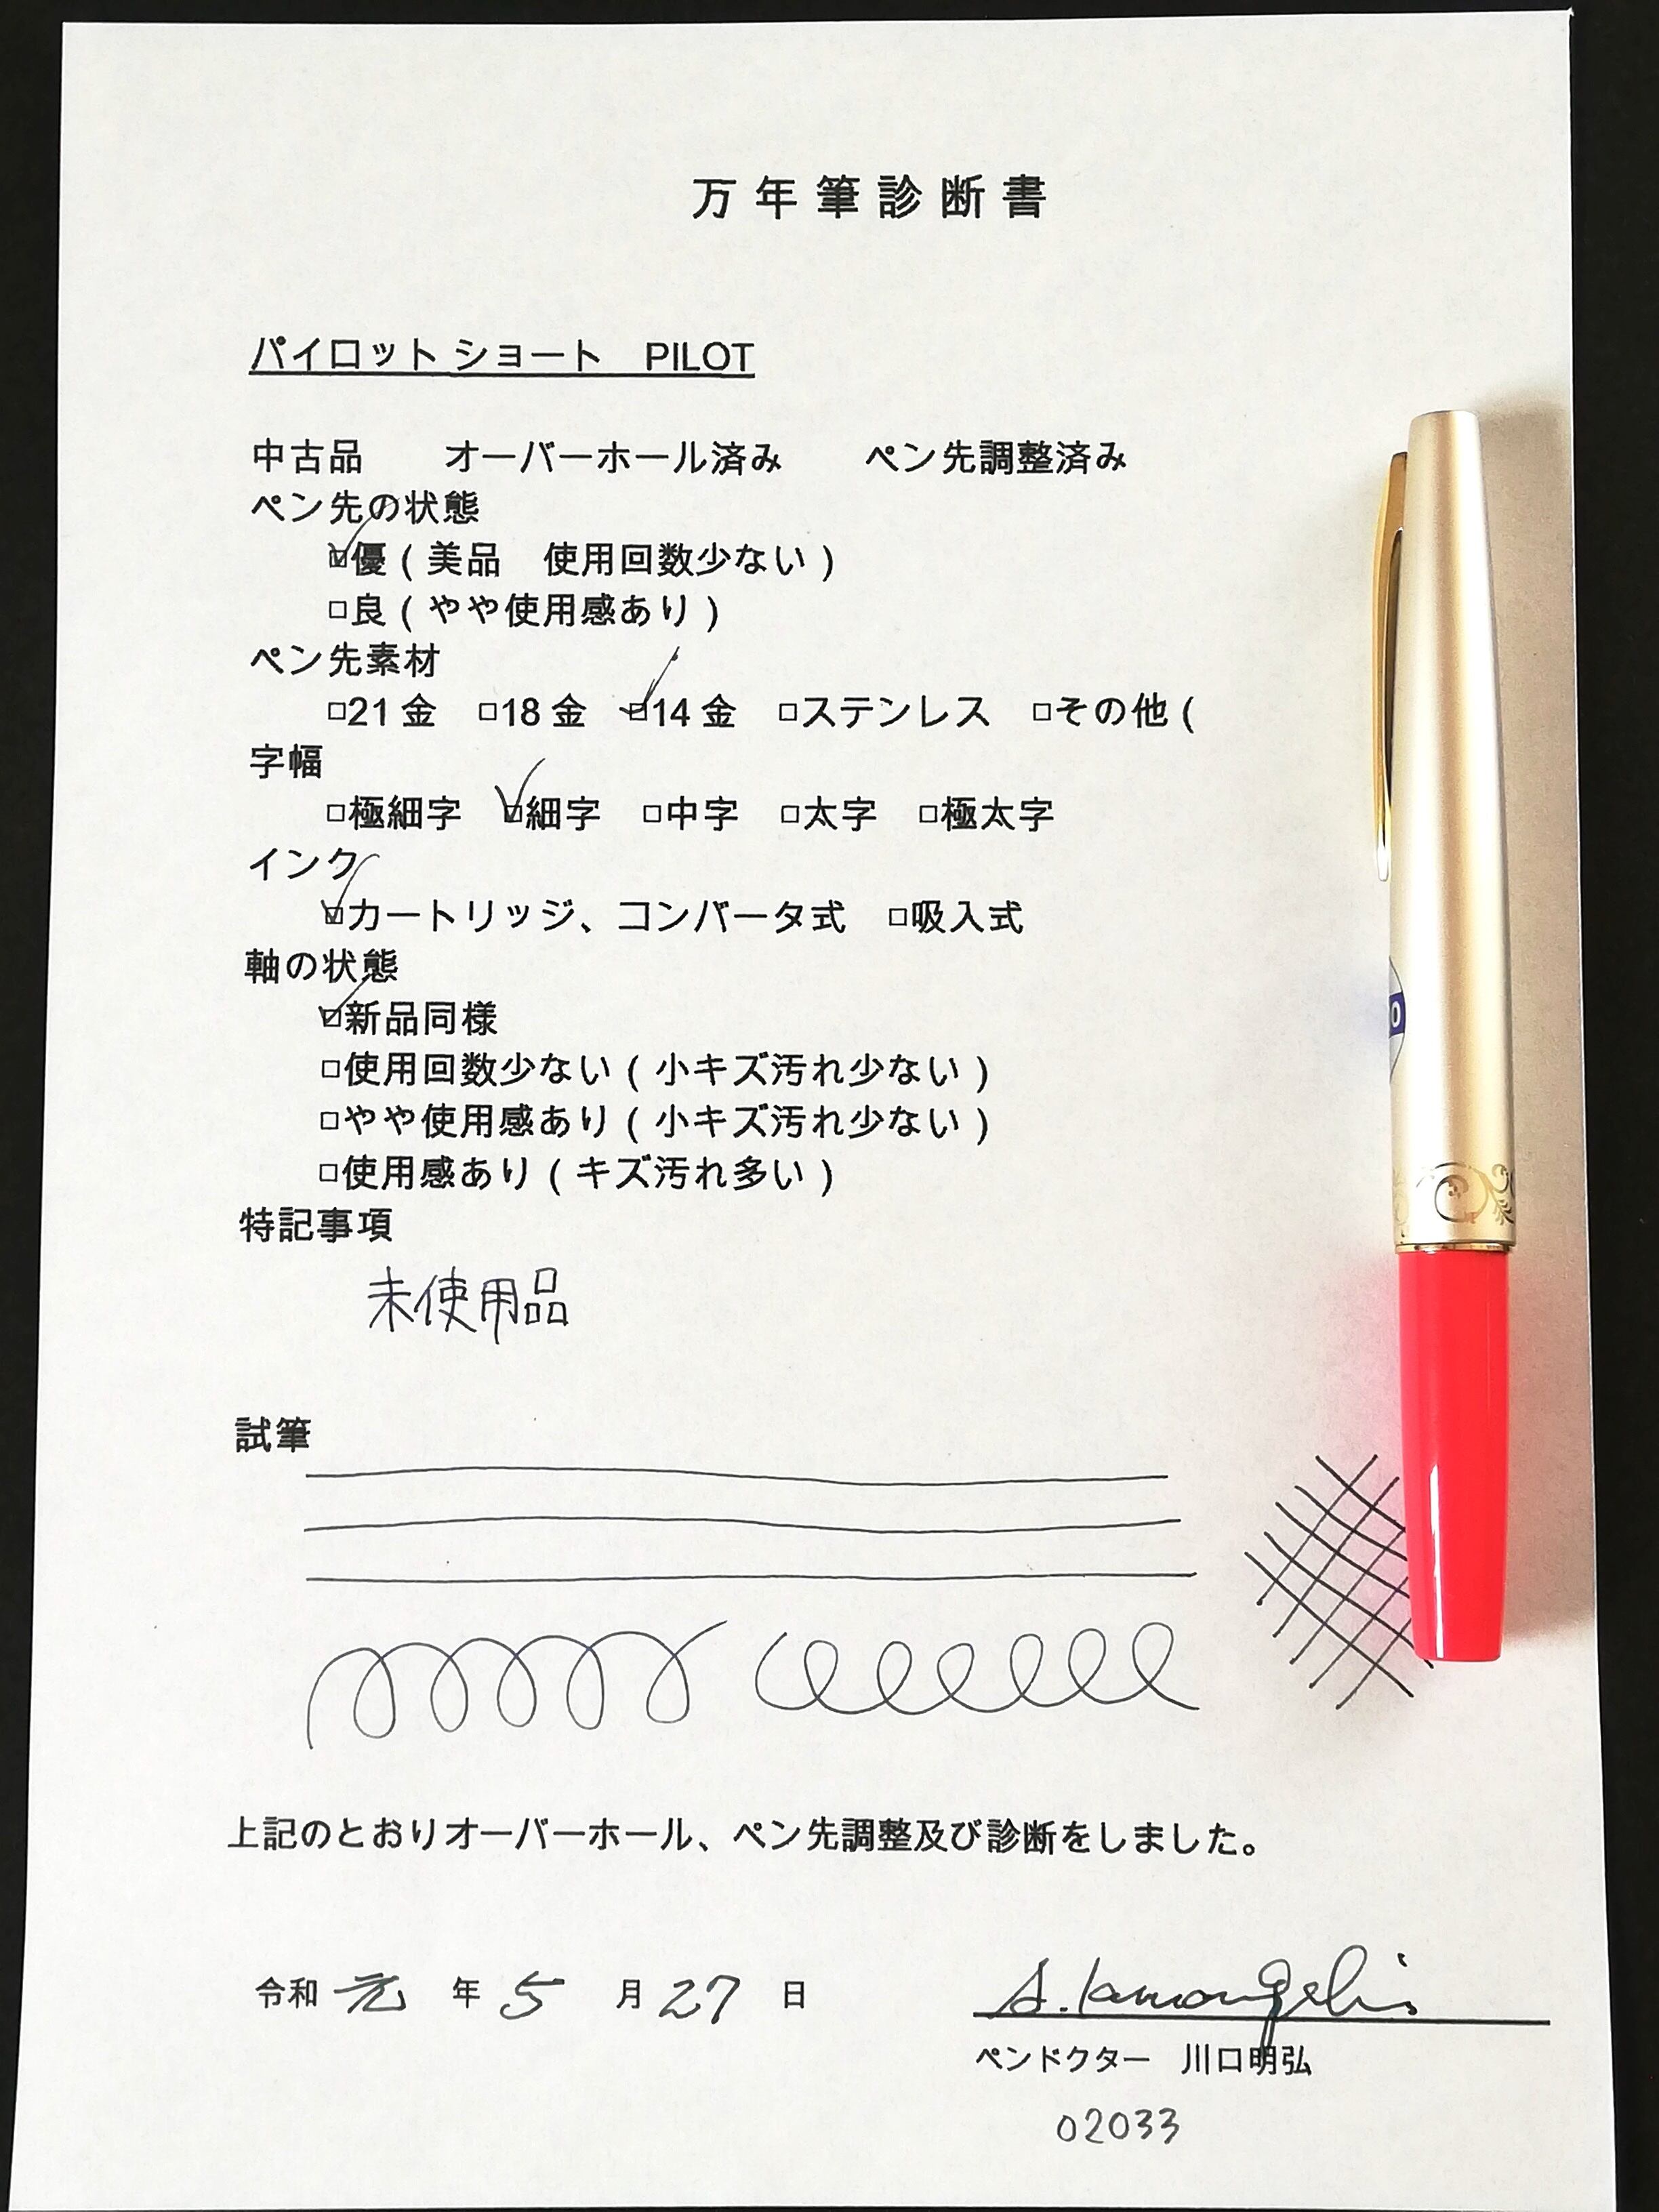 万年筆診断書
パイロット ショート　PILOT
中古品　　オーバーホール済み　　ペン先調整済み
ペン先の状態
☑優（美品　使用回数少ない）
□良（やや使用感あり）
ペン先素材
□21金　□18金　☑14金　□ステンレス　□その他（
字幅
□極細字　☑細字　□中字　□太字　□極太字
インク
☑カートリッジ、コンバータ式　□吸入式
軸の状態
☑新品同様
□使用回数少ない（小キズ汚れ少ない）
□やや使用感あり（小キズ汚れ少ない）
□使用感あり（キズ汚れ多い）
特記事項
未使用品
試筆
上記のとおりオーバーホール、ペン先調整及び診断をしました。
令和 元 年 5 月 27 日
ペンドクター　川口明弘
02033